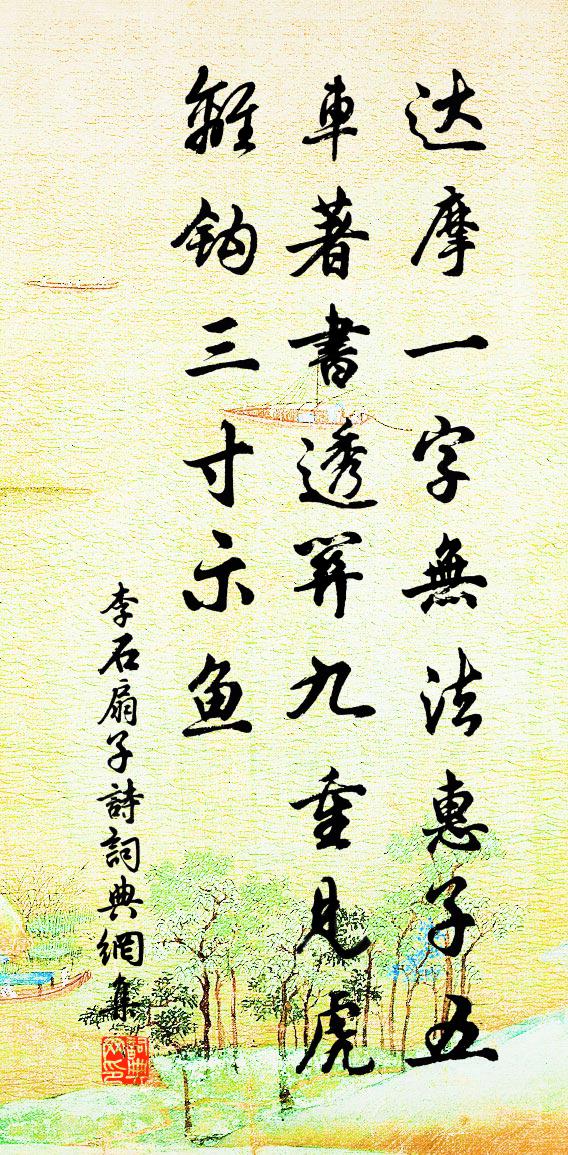 达摩一字無法惠子五
車著書透關九重見虎
離鈎三寸示鱼
李石扇子詩詞典網集